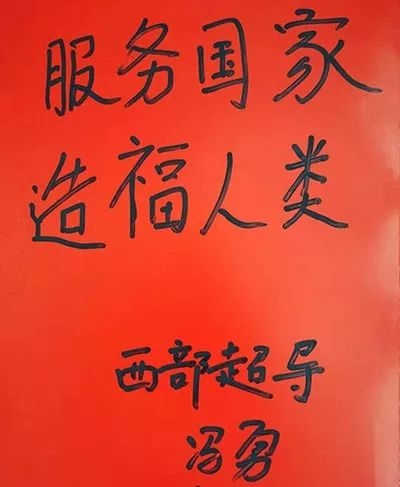 服务国家
造福人类
西部超导
冯勇